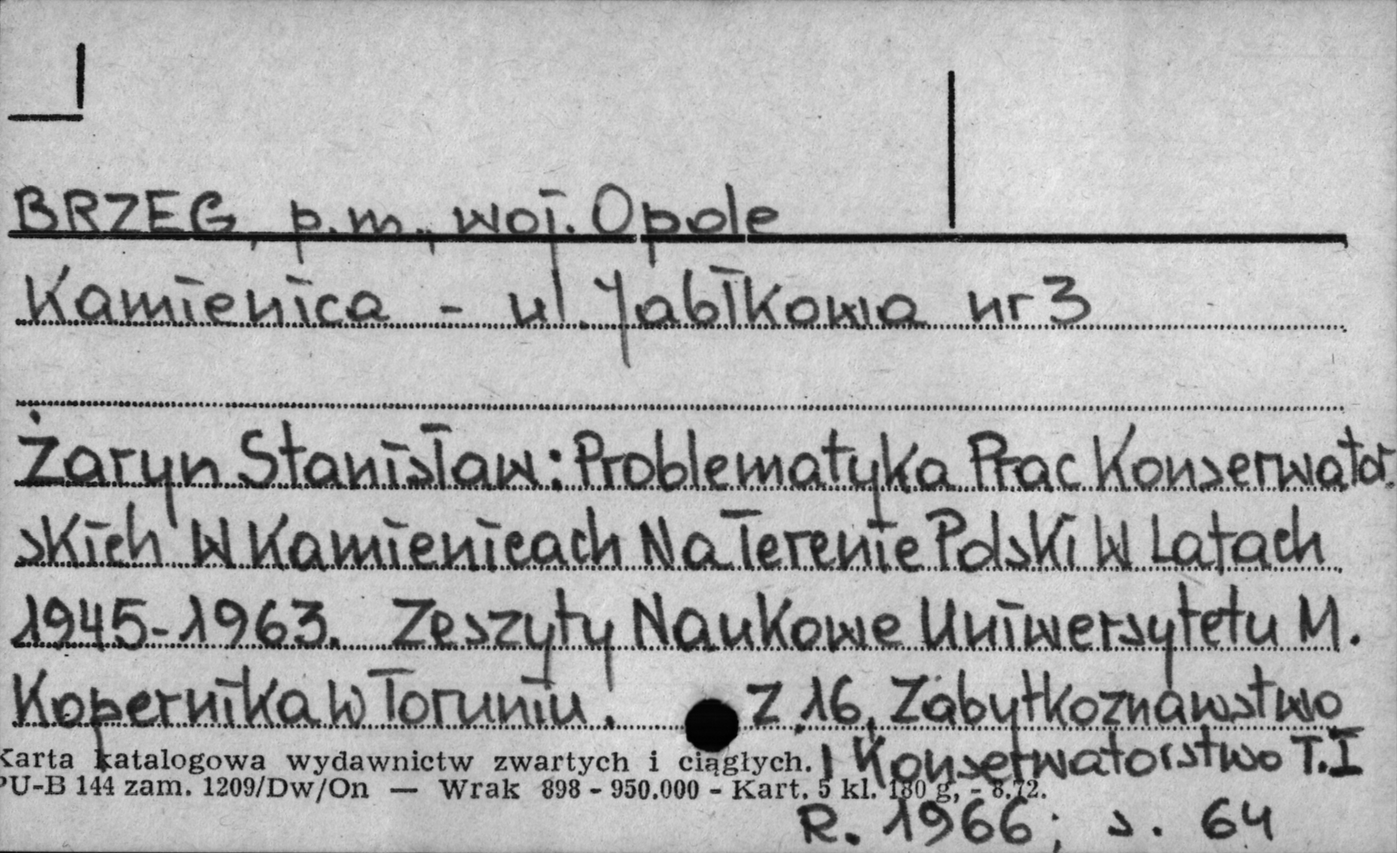 BRZEG, p.m., woj. Opole
Kamienica - ul. Jabłkowa nr 3
Żaryn Stanisław: Problematyka Prac Konserwator.
skich W Kamienicach Na Terenie Polski W Latach
1945-1963. Zeszyty Naukowe Uniwersytetu M.
Kopernika W Toruniu. Z 16, Zabytkoznawstwo
I Konserwatorstwo T.I
Karta katalogowa wydawnictw zwartych i ciągłych.
PU-B 144 zam. 1209/Dw/On — Wrak 898 - 950.000 - Kart. 5 kl. 180 g, - 8.72.
R. 1966; s. 64